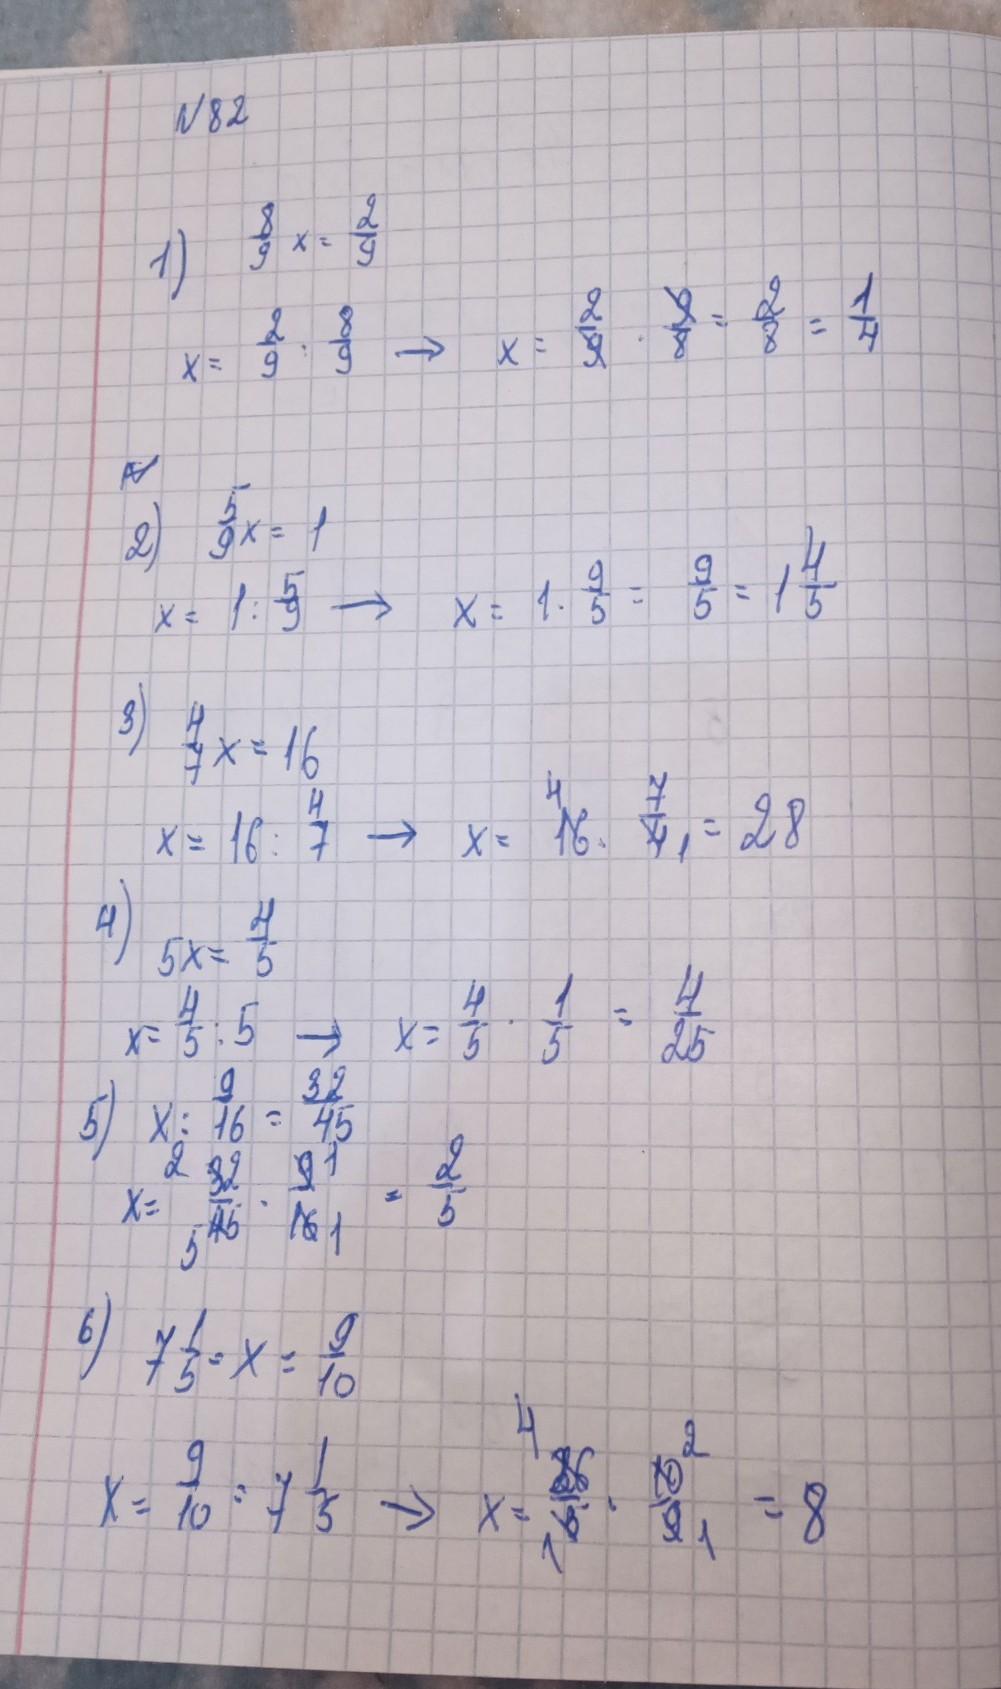 №82
1) 8/9 x = 2/9
x = 2/9 : 8/9 → x = 2/9 · 9/8 = 2/8 = 1/4
2) 5/9 x = 1
x = 1 : 5/9 → x = 1 · 9/5 = 9/5 = 1 4/5
3) 4/7 x = 16
x = 16 : 4/7 → x = 4 16 · 7/4 1 = 28
4) 5x = 4/5
x = 4/5 : 5 → x = 4/5 · 1/5 = 4/25
5) x : 9/16 = 32/45
x = 2 32/45 5 · 9 1/16 1 = 2/5
6) 7 1/5 = x = 9/10
x = 9/10 = 7 1/5 → x = 4 36/5 1 · 10 2/9 1 = 8